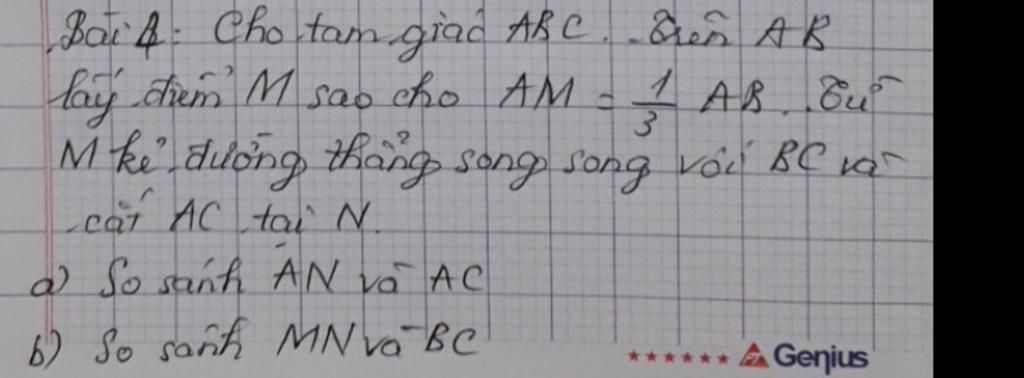 Bài 4: Cho tam giác ABC. Trên AB
lấy điểm M sao cho AM = 1/3 AB. Từ
M kẻ đường thẳng song song với BC và
cắt AC tại N.
a) So sánh AN và AC
b) So sánh MN và BC
Genius